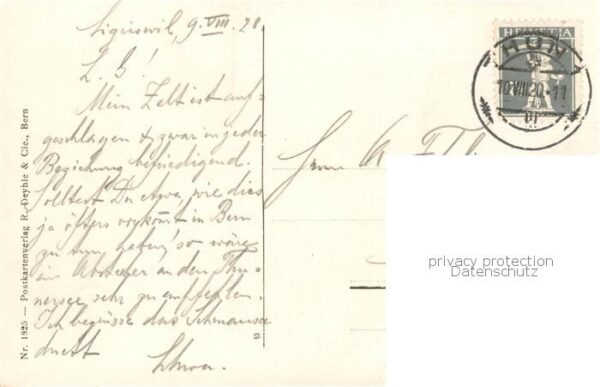 Sigriswil, 9. VIII. 20
L. G.!
Mein Zelt ist auf-
geschlagen & zwar in jeder
Beziehung befriedigend.
Solltest Du etwa, wie dies
ja öfters vorkommt in Bern
zu tun haben, so wäre
ein Abstecher an den Thu-
nersee sehr zu empfehlen.
Ich begrüsse das
Herrn
Nr. 1825 — Postkartenverlag R. Deyhle & Cie., Bern
HELVETIA
THUN
10.VIII.20.-11
privacy protection
Datenschutz